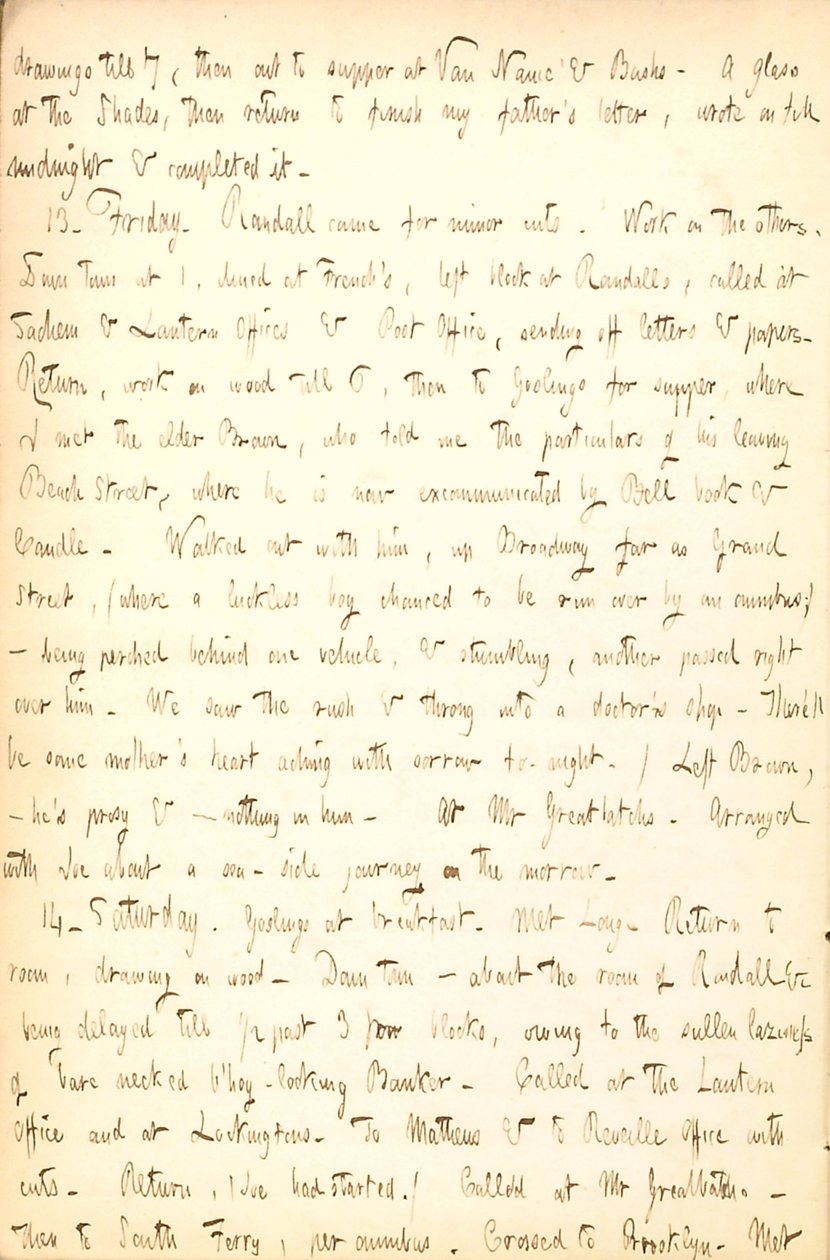 drawings till 7, then out to supper at Van Name & Bushs - A glass
at the Shades, then return to finish my father's letter, wrote on till
midnight & completed it -
13 - Friday - Randall came for minor cuts - Work on the others.
Down town at 1, dined at French's, left block at Randalls, called at
Sachem & Lantern Offices & Post Office, sending off letters & papers -
Return, work on wood till 6, then to Goslings for supper, where
I met the elder Brown, who told me the particulars of his leaving
Beach Street, where he is now excommunicated by Bell book &
Candle - Walked out with him, up Broadway far as Grand
Street, (where a luckless boy chanced to be run over by an omnibus;)
- being perched behind one vehicle, & stumbling, another passed right
over him - We saw the rush & throng into a doctor's shop - There'll
be some mother's heart aching with sorrow to-night. / Left Brown,
- he's prosy & - nothing in him - At Mr Greatbatchs - Arranged
with Joe about a sea-side journey on the morrow -
14 - Saturday. Goslings at breakfast - Met Long - Return to
room, drawing on wood - Down town - about the room of Randall &c
being delayed till 1/2 past 3 for blocks, owing to the sullen laziness
of bare necked b'hoy-looking Banker - Called at the Lantern
Office and at Lockingtons - To Mathews & to Reveille Office with
cuts - Return, (Joe had started.) Called at Mr Greatbatchs -
then to South Ferry, per omnibus. Crossed to Brooklyn - Met